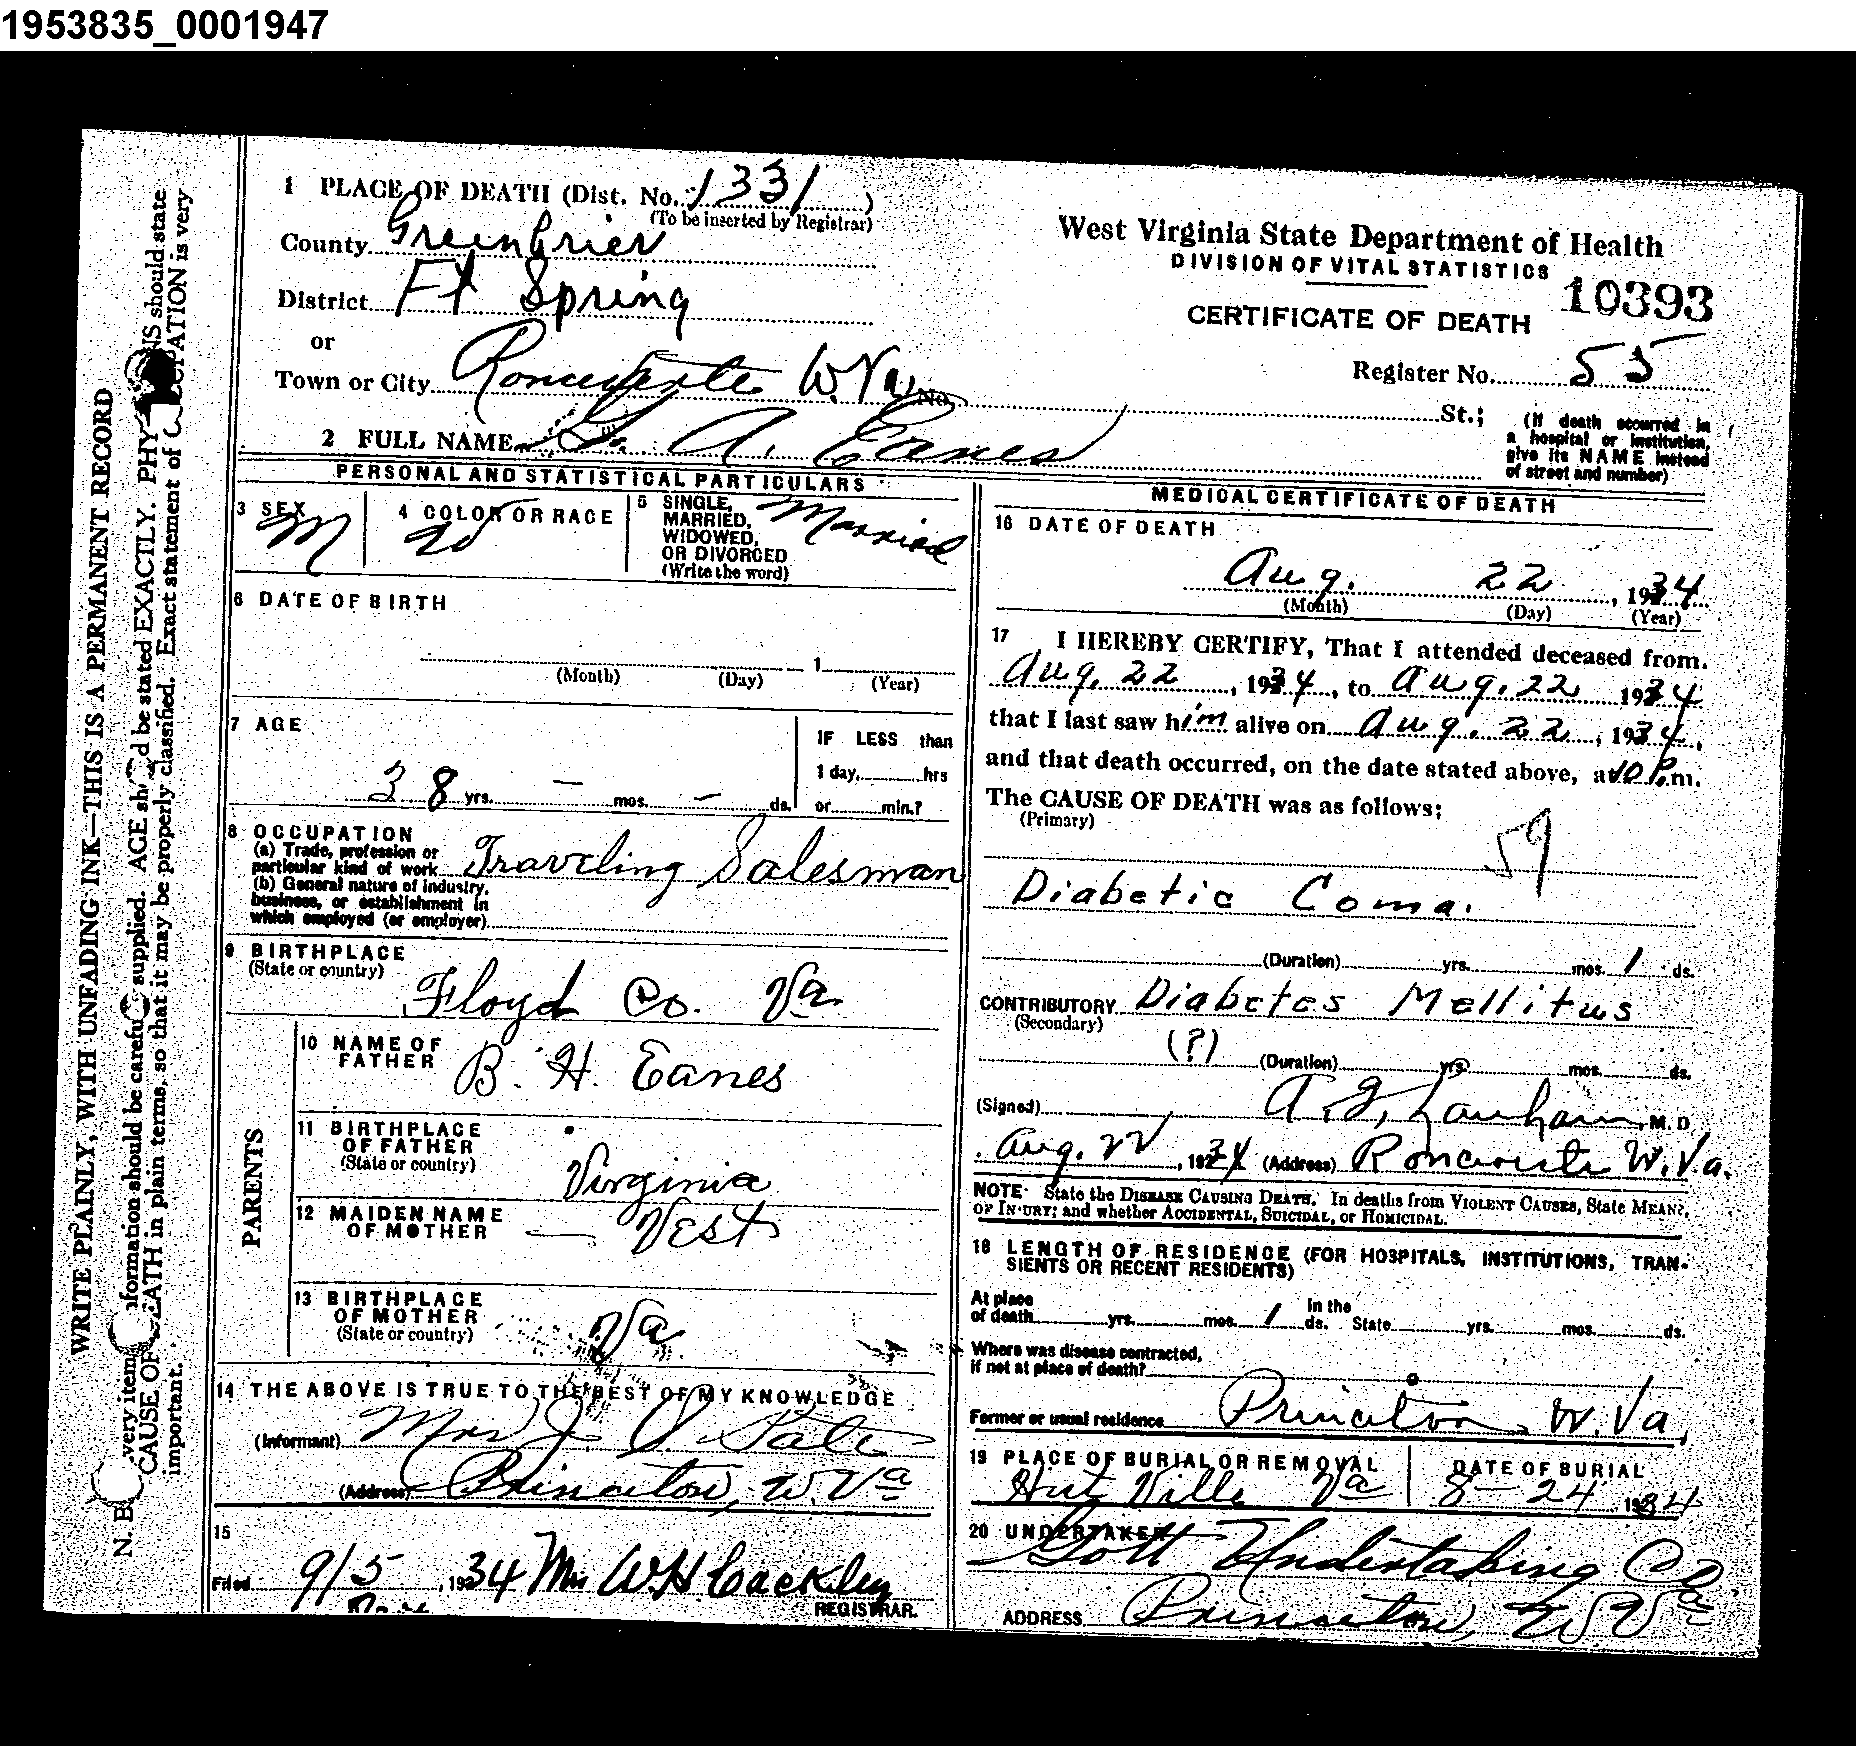 1953835_0001947
WRITE PLAINLY, WITH UNFADING INK—THIS IS A PERMANENT RECORD
N. B. very item formation should be carefu supplied. AGE sh d be stated EXACTLY. PHY NS should state
CAUSE OF EATH in plain terms, so that it may be properly classified. Exact statement of CUPATION is very
important.
1 PLACE OF DEATH (Dist. No. 1331)
(To be inserted by Registrar)
County Greenbrier
District Ft Spring
or
Town or City Ronceverte W.Va. No. St.;
West Virginia State Department of Health
DIVISION OF VITAL STATISTICS
10393
CERTIFICATE OF DEATH
Register No. 55
(If death occurred in
a hospital or institution,
give its NAME instead
of street and number)
2 FULL NAME A. Eanes
PERSONAL AND STATISTICAL PARTICULARS
3 SEX M
4 COLOR OR RACE W
5 SINGLE, MARRIED, WIDOWED, OR DIVORCED (Write the word) Married
6 DATE OF BIRTH
1
(Month) (Day) (Year)
7 AGE
38 yrs. — mos. — ds.
IF LESS than
1 day, hrs
or min.?
8 OCCUPATION
(a) Trade, profession or
particular kind of work Traveling Salesman
(b) General nature of industry,
business, or establishment in
which employed (or employer)
9 BIRTHPLACE
(State or country) Floyd Co. Va.
PARENTS
10 NAME OF FATHER B. H. Eanes
11 BIRTHPLACE OF FATHER
(State or country) Virginia
12 MAIDEN NAME OF MOTHER — Vest
13 BIRTHPLACE OF MOTHER
(State or country) Va.
14 THE ABOVE IS TRUE TO THE BEST OF MY KNOWLEDGE
(Informant) Mrs J.
(Address) Princeton, W. Va
15
Filed 9/5, 1934 Mrs W H Cackley
REGISTRAR.
MEDICAL CERTIFICATE OF DEATH
16 DATE OF DEATH
Aug. 22, 1934
(Month) (Day) (Year)
17 I HEREBY CERTIFY, That I attended deceased from.
Aug. 22, 1934, to Aug. 22 1934
that I last saw him alive on Aug. 22, 1934,
and that death occurred, on the date stated above, at 10 P.m.
The CAUSE OF DEATH was as follows:
(Primary)
59
Diabetic Coma.
(Duration) yrs. mos. 1 ds.
CONTRIBUTORY Diabetes Mellitus
(Secondary)
(?) (Duration) yrs. mos. ds.
(Signed) Lanham, M.D
Aug. 22, 1934 (Address) Ronceverte W.Va.
NOTE State the DISEASE CAUSING DEATH. In deaths from VIOLENT CAUSES, State MEANS
OF INJURY; and whether ACCIDENTAL, SUICIDAL, or HOMICIDAL.
18 LENGTH OF RESIDENCE (FOR HOSPITALS, INSTITUTIONS, TRAN-
SIENTS OR RECENT RESIDENTS)
At place
of death yrs. mos. 1 ds. In the State yrs. mos. ds.
Where was disease contracted,
if not at place of death?
Former or usual residence Princeton, W. Va,
19 PLACE OF BURIAL OR REMOVAL DATE OF BURIAL
Ville Va 8-24, 1934
20 UNDERTAKER
Gott Undertaking Co
ADDRESS Princeton, W Va